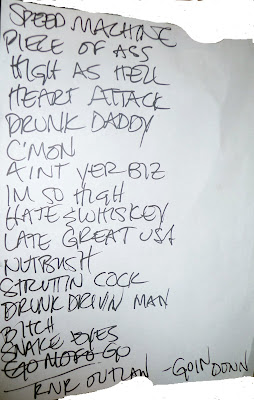 SPEED MACHINE
PIECE OF ASS
HIGH AS HELL
HEART ATTACK
DRUNK DADDY
C'MON
AINT YER BIZ
IM SO HIGH
HATE & WHISKEY
LATE GREAT USA
NUTBUSH
STRUTTIN COCK
DRUNK DRIVIN MAN
BITCH
SNAKE EYES
EGO MOTO GO
- RNR OUTLAW - GOIN DOWN